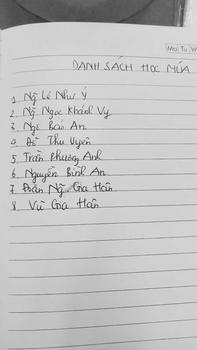 Mo Tu W
DANH SÁCH HỌC MÚA
1. Ng̃ Lê Như Ý
2. Ng̃ Ngọc Khánh Vy
3. Ngô Bảo An
4. Đỗ Thu Uyên
5. Trần Phương Anh
6. Nguyễn Bình An
7. Đoàn Ng̃ Gia Hân
8. Vũ Gia Hân